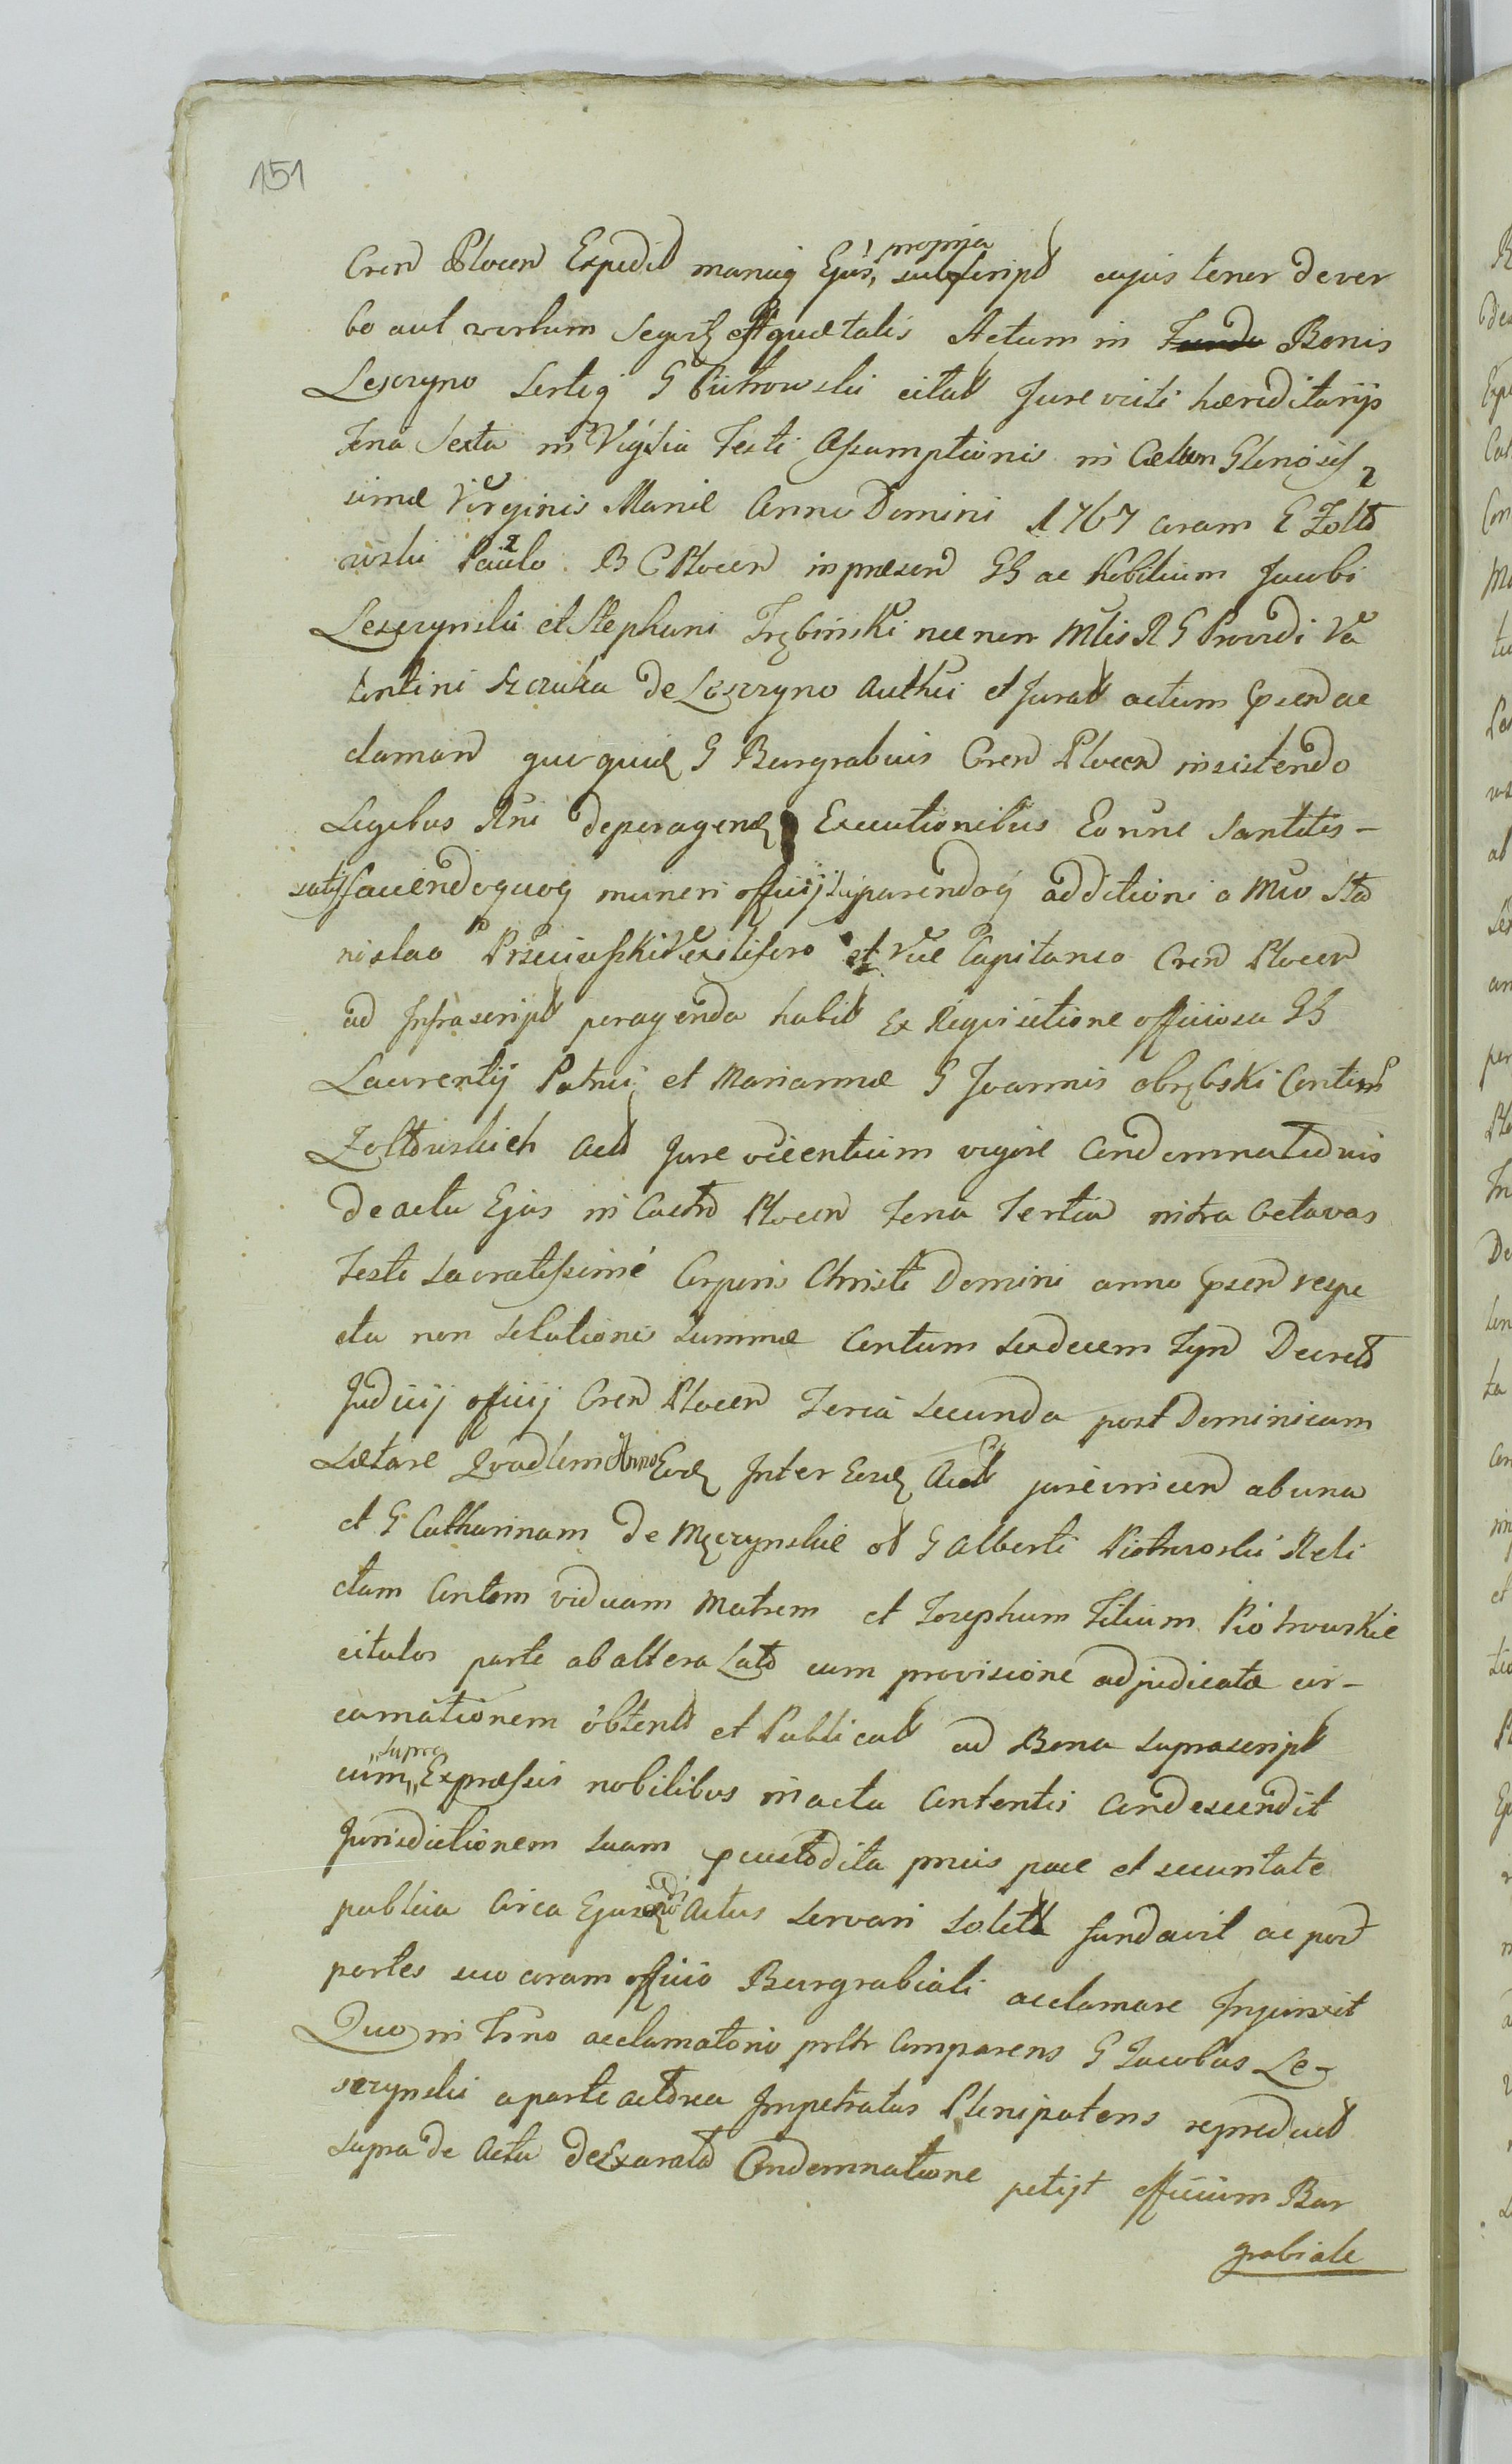 151
Cren Plocen Expedit manuq Ejus, propria subscript cujus tenor de ver
bo aut verbum sequit est quæ talis Actum in Fundo Bonis
Leszczyno G Piotrowski citat Jure victi hæreditarijs
Feria Sexta in Vigilia Festi Assumptionis in Cælum Gloriosis
simæ Virginis Mariæ Anno Domini 1767 coram G Zolto
wski Paulo B C Plocen in præsen GG ac Nobilium Jacobi
Leszczynski et Stephani Trębinski nec non Mtis R G Providi Va
lentini de Leszczyno authei et Jurat actum psen ac
claman qui quid G Burgrabius Cren Plocen insistendo
Legibus Rni de peragend Executionibus Eorune Sancitis -
satisfaciendoquoq muneri officij sui parendoq additioni a Mco Sta
nislao Przeciszki Vexillifero et Vice Capitaneo Cren Plocen
ad Infrascript peragenda habit Ex Requisitione officiosa GG
Laurentij Patrui et Mariannæ G Joannis obrębski Contim
Zoltowskich act Jure vicentium vigore Condemnationis
de actu Ejus in Castro Plocen Feria Tertia intra Octavas
Festi Sacratissimi Corporis Christi Domini anno psen respe
ctu non solutionis summæ Centum sedecem Tyn Decreto
Judicij officij Cren Plocen Feria Secunda post Dominicam
Lætare Qvadlem Anno Eod Inter Eosd Act jure vincen ab una
et G Catharinam de Męczynskie ol G Alberti Piotrowski Reli
ctam Contem viduam Matrem et Josephum Filium Piotrowskie
citatos parte ab altera Lato cum provisione adjudicatæ cir-
cumationem obtent et Publicat ad Bona suprascript
cum supra Expressis nobilibus in actu Contentis Condescendit
Jurisdictionem suam pcustodita prius pace et securitate
publica circa Ejusmodi Actus servari solita fundavit ac per
partes suo coram officio Burgrabiali acclamare Injunxit
Quo in Trno acclamatorio prltr Comparens G Jacobus Le-
szczynski a parte actorea Impetratus Plenipotens reproduct
supra de Actu de Exarato Condemnatione petijt officium Bur
grabiale